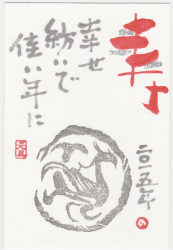 幸
幸せ
紡いで
佳い年に
二〇一五年